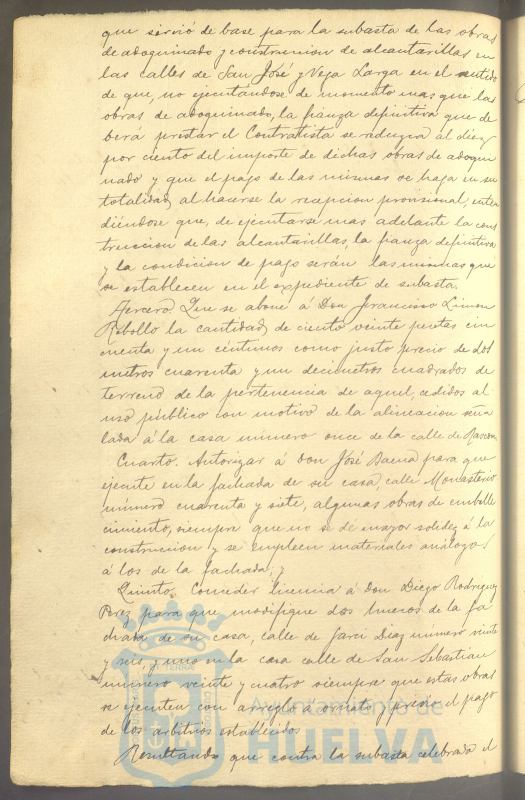 que sirvió de base para la subasta de las obras
de adoquinado y construccion de alcantarillas en
las calles de San José y Vega Larga en el sentido
de que, no ejecutándose de momento mas que las
obras de adoquinado, la fianza definitiva que de
berá prestar el Contratista se reduzca al diez
por ciento del importe de dichas obras de adoqui
nado y que el pago de las mismas se haga en su
totalidad al hacerse la recepcion provisional, enten
diéndose que, de ejecutarse mas adelante la cons
truccion de las alcantarillas, la fianza definitiva
y la condicion de pago serán las mismas que
se establecen en el expediente de subasta.
Tercero. Que se abone á Don Francisco Limon
Rebollo la cantidad de ciento veinte pesetas cin
cuenta y un céntimos como justo precio de dos
metros cuarenta y un decimetros cuadrados de
terreno de la pertenencia de aquel, cedidos al
uso público con motivo de la alineacion seña
lada á la casa número once de la calle de Rascon
Cuarto. Autorizar á Don José Baena para que
ejecute en la fachada de su casa, calle Monasterio
número cuarenta y siete, algunas obras de embelle
cimiento, siempre que no se dé mayor solidez á la
construccion y se empleen materiales análogos
á los de la fachada; y
Quinto. Conceder licencia á Don Diego Rodriguez
Perez para que modifique dos huecos de la fa
chada de su casa, calle de Garci Diaz número veinte
y seis y uno en la casa calle de San Sebastian
número veinte y cuatro siempre que estas obras
se ejecuten con arreglo á ornato y previo el pago
de los arbitrios establecidos
Resultando que contra la subasta celebrada el
Ayuntamiento de
HUELVA